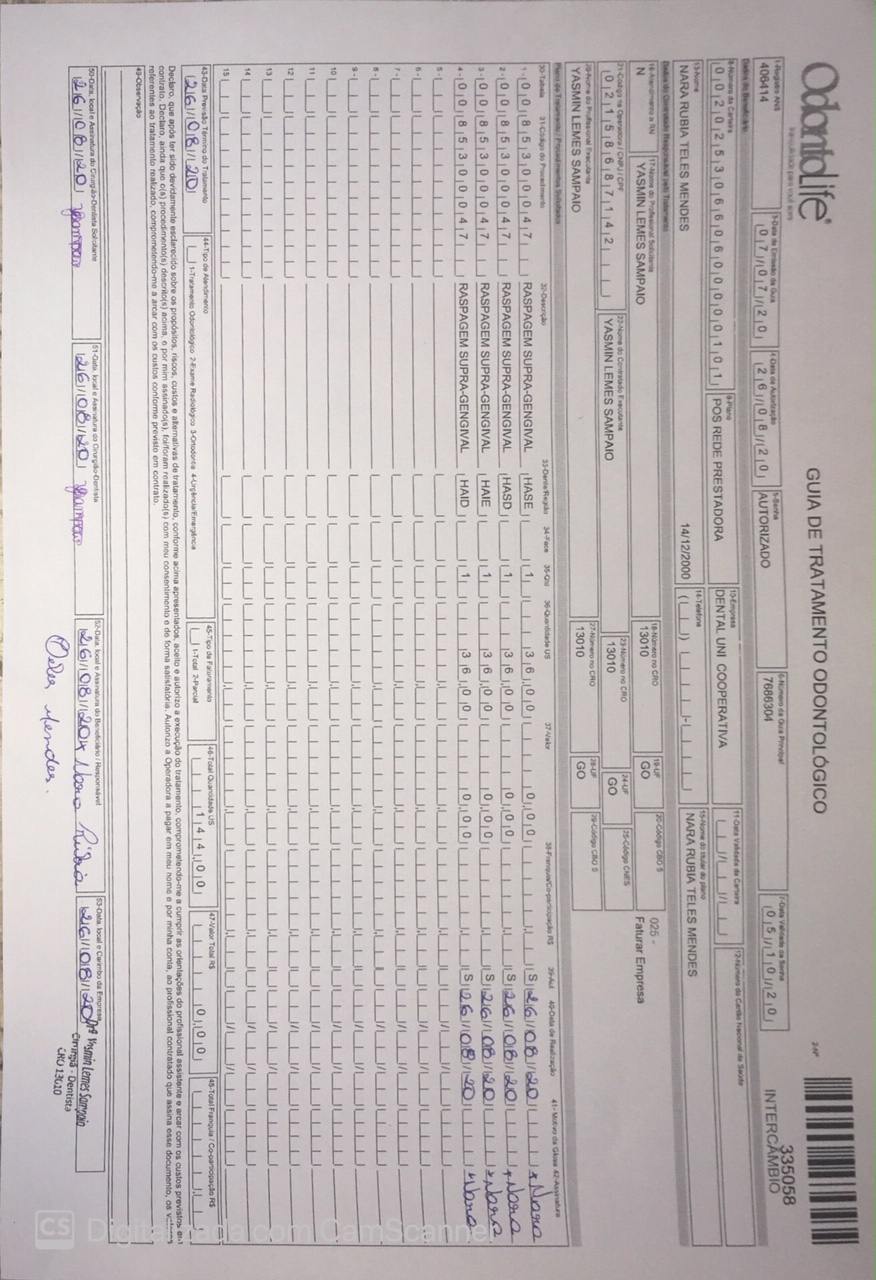 OdontoLife®
GUIA DE TRATAMENTO ODONTOLÓGICO
2-Nº
335058
INTERCÂMBIO
1-Registro ANS
406414
3-Data de Emissão da Guia
07/07/20
4-Data da Autorização
26/08/20
5-Senha
AUTORIZADO
6-Número da Guia Principal
7686304
7-Data Validade da Senha
05/10/20
Dados do Beneficiário
8-Número da Carteira
00202530660600000101
9-Plano
POS REDE PRESTADORA
10-Empresa
DENTAL UNI COOPERATIVA
11-Data Validade da Carteira
12-Número do Cartão Nacional de Saúde
13-Nome
NARA RUBIA TELES MENDES
14/12/2000
14-Telefone
15-Nome do titular do plano
NARA RUBIA TELES MENDES
Dados do Contratado Responsável pelo Tratamento
16-Atendimento a RN
N
17-Nome do Profissional Solicitante
YASMIN LEMES SAMPAIO
18-Número no CRO
13010
19-UF
GO
20-Código CBO S
025 -
Faturar Empresa
21-Código na Operadora / CNPJ / CPF
02158687142
22-Nome do Contratado Executante
YASMIN LEMES SAMPAIO
23-Número no CRO
13010
24-UF
GO
25-Código CNES
26-Nome do Profissional Executante
YASMIN LEMES SAMPAIO
27-Número no CRO
13010
28-UF
GO
29-Código CBO S
Plano de Tratamento / Procedimentos Solicitados
30-Tabela 31-Código do Procedimento 32-Descrição 33-Dente/Região 34-Face 35-Qtd 36-Quantidade US 37-Valor 38-Franquia/Co-participação R$ 39-Aut 40-Data de Realização 41-Motivo da Glosa 42-Assinatura
1- 00 85300047 RASPAGEM SUPRA-GENGIVAL HASE 1 36,00 0,00 S 26/08/20 x Nara
2- 00 85300047 RASPAGEM SUPRA-GENGIVAL HASD 1 36,00 0,00 S 26/08/20 x Nara
3- 00 85300047 RASPAGEM SUPRA-GENGIVAL HAIE 1 36,00 0,00 S 26/08/20 x Nara
4- 00 85300047 RASPAGEM SUPRA-GENGIVAL HAID 1 36,00 0,00 S 26/08/20 x Nara
5-
6-
7-
8-
9-
10
11
12
13
14
15
43-Data Previsão Término do Tratamento
26/08/20
44-Tipo de Atendimento
1-Tratamento Odontológico 2-Exame Radiológico 3-Ortodontia 4-Urgência/Emergência
45-Tipo de Faturamento
1-Total 2-Parcial
46-Total Quantidade US
144,00
47-Valor Total R$
0,00
48-Total Franquia / Co-participação R$
Declaro, que após ter sido devidamente esclarecido sobre os propósitos, riscos, custos e alternativas de tratamento, conforme acima apresentados, aceito e autorizo a execução do tratamento, comprometendo-me a cumprir as orientações do profissional assistente e arcar com os custos previstos em
contrato. Declaro, ainda que o(s) procedimento(s) descrito(s) acima, e por mim assinado(s), foi/foram realizado(s) com meu consentimento e de forma satisfatória. Autorizo a Operadora a pagar em meu nome e por minha conta, ao profissional contratado que assina esse documento, os valores
referentes ao tratamento realizado, comprometendo-me a arcar com os custos conforme previsto em contrato.
49-Observação
50-Data, local e Assinatura do Cirurgião-Dentista Solicitante
26/08/20 Ysampaio
51-Data, local e Assinatura do Cirurgião-Dentista
26/08/20 Ysampaio
52-Data, local e Assinatura do Beneficiário / Responsável
26/08/20 x Nara Rúbia
Teles Mendes.
53-Data, local e Carimbo da Empresa
26/08/20
Drª Yasmin Lemes Sampaio
Cirurgiã - Dentista
CRO 13010
CS Digitalizada com CamScanner